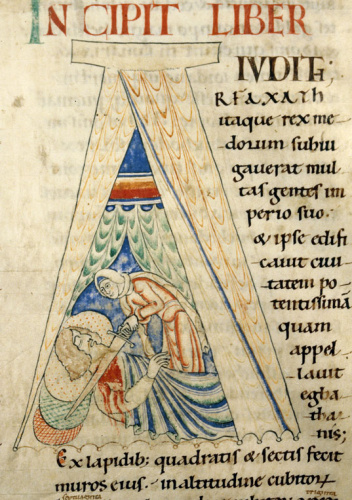 INCIPIT LIBER
IVDITH;
RFAXATH
itaque rex me
dorum subiu
gauerat mul
tas gentes im
perio suo.
& ipse edifi
cauit ciui
tatem po
tentissimā
quam
appel
lauit
egba
tha
nis;
Ex lapidib; quadratis & sectis fecit
muros eius. in altitudine cubitorū